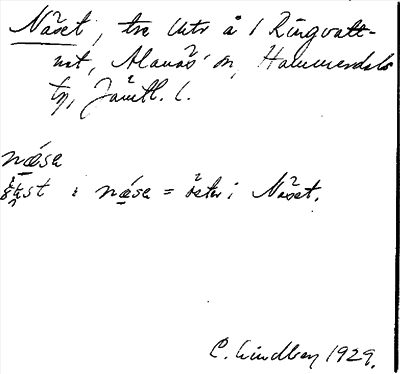 Näset, tre åbr å 1 Ringvatt-
net, Alanäs' sn, Hammerdals
tg, Jämtl. l.
næ̀sa
i næ̀sa = öster i Näset.
C. Lindberg 1929.